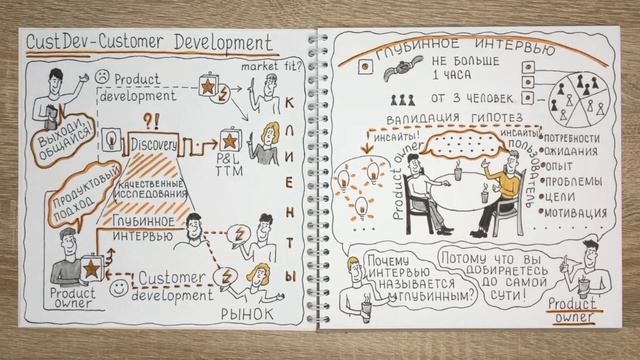 CustDev - Customer Development
market fit?
Product
development
ВЫХОДИ,
ОБЩАЙСЯ!
?!
Discovery
P&L
TTM
КЛИЕНТЫ
ПРОДУКТОВЫЙ
ПОДХОД
КАЧЕСТВЕННЫЕ
ИССЛЕДОВАНИЯ
ГЛУБИННОЕ
ИНТЕРВЬЮ
Customer
development
Product
owner
РЫНОК
ГЛУБИННОЕ ИНТЕРВЬЮ
НЕ БОЛЬШЕ
1 ЧАСА
ОТ 3 ЧЕЛОВЕК
ВАЛИДАЦИЯ ГИПОТЕЗ
ИНСАЙТЫ!
ИНСАЙТЫ
Product owner
ПОЛЬЗОВАТЕЛЬ
ПОТРЕБНОСТИ
ОЖИДАНИЯ
ОПЫТ
ПРОБЛЕМЫ
ЦЕЛИ
МОТИВАЦИЯ
ПОЧЕМУ
ИНТЕРВЬЮ
НАЗЫВАЕТСЯ
ГЛУБИННЫМ?
ПОТОМУ ЧТО ВЫ
ДОБИРАЕТЕСЬ
ДО САМОЙ
СУТИ!
Product
owner